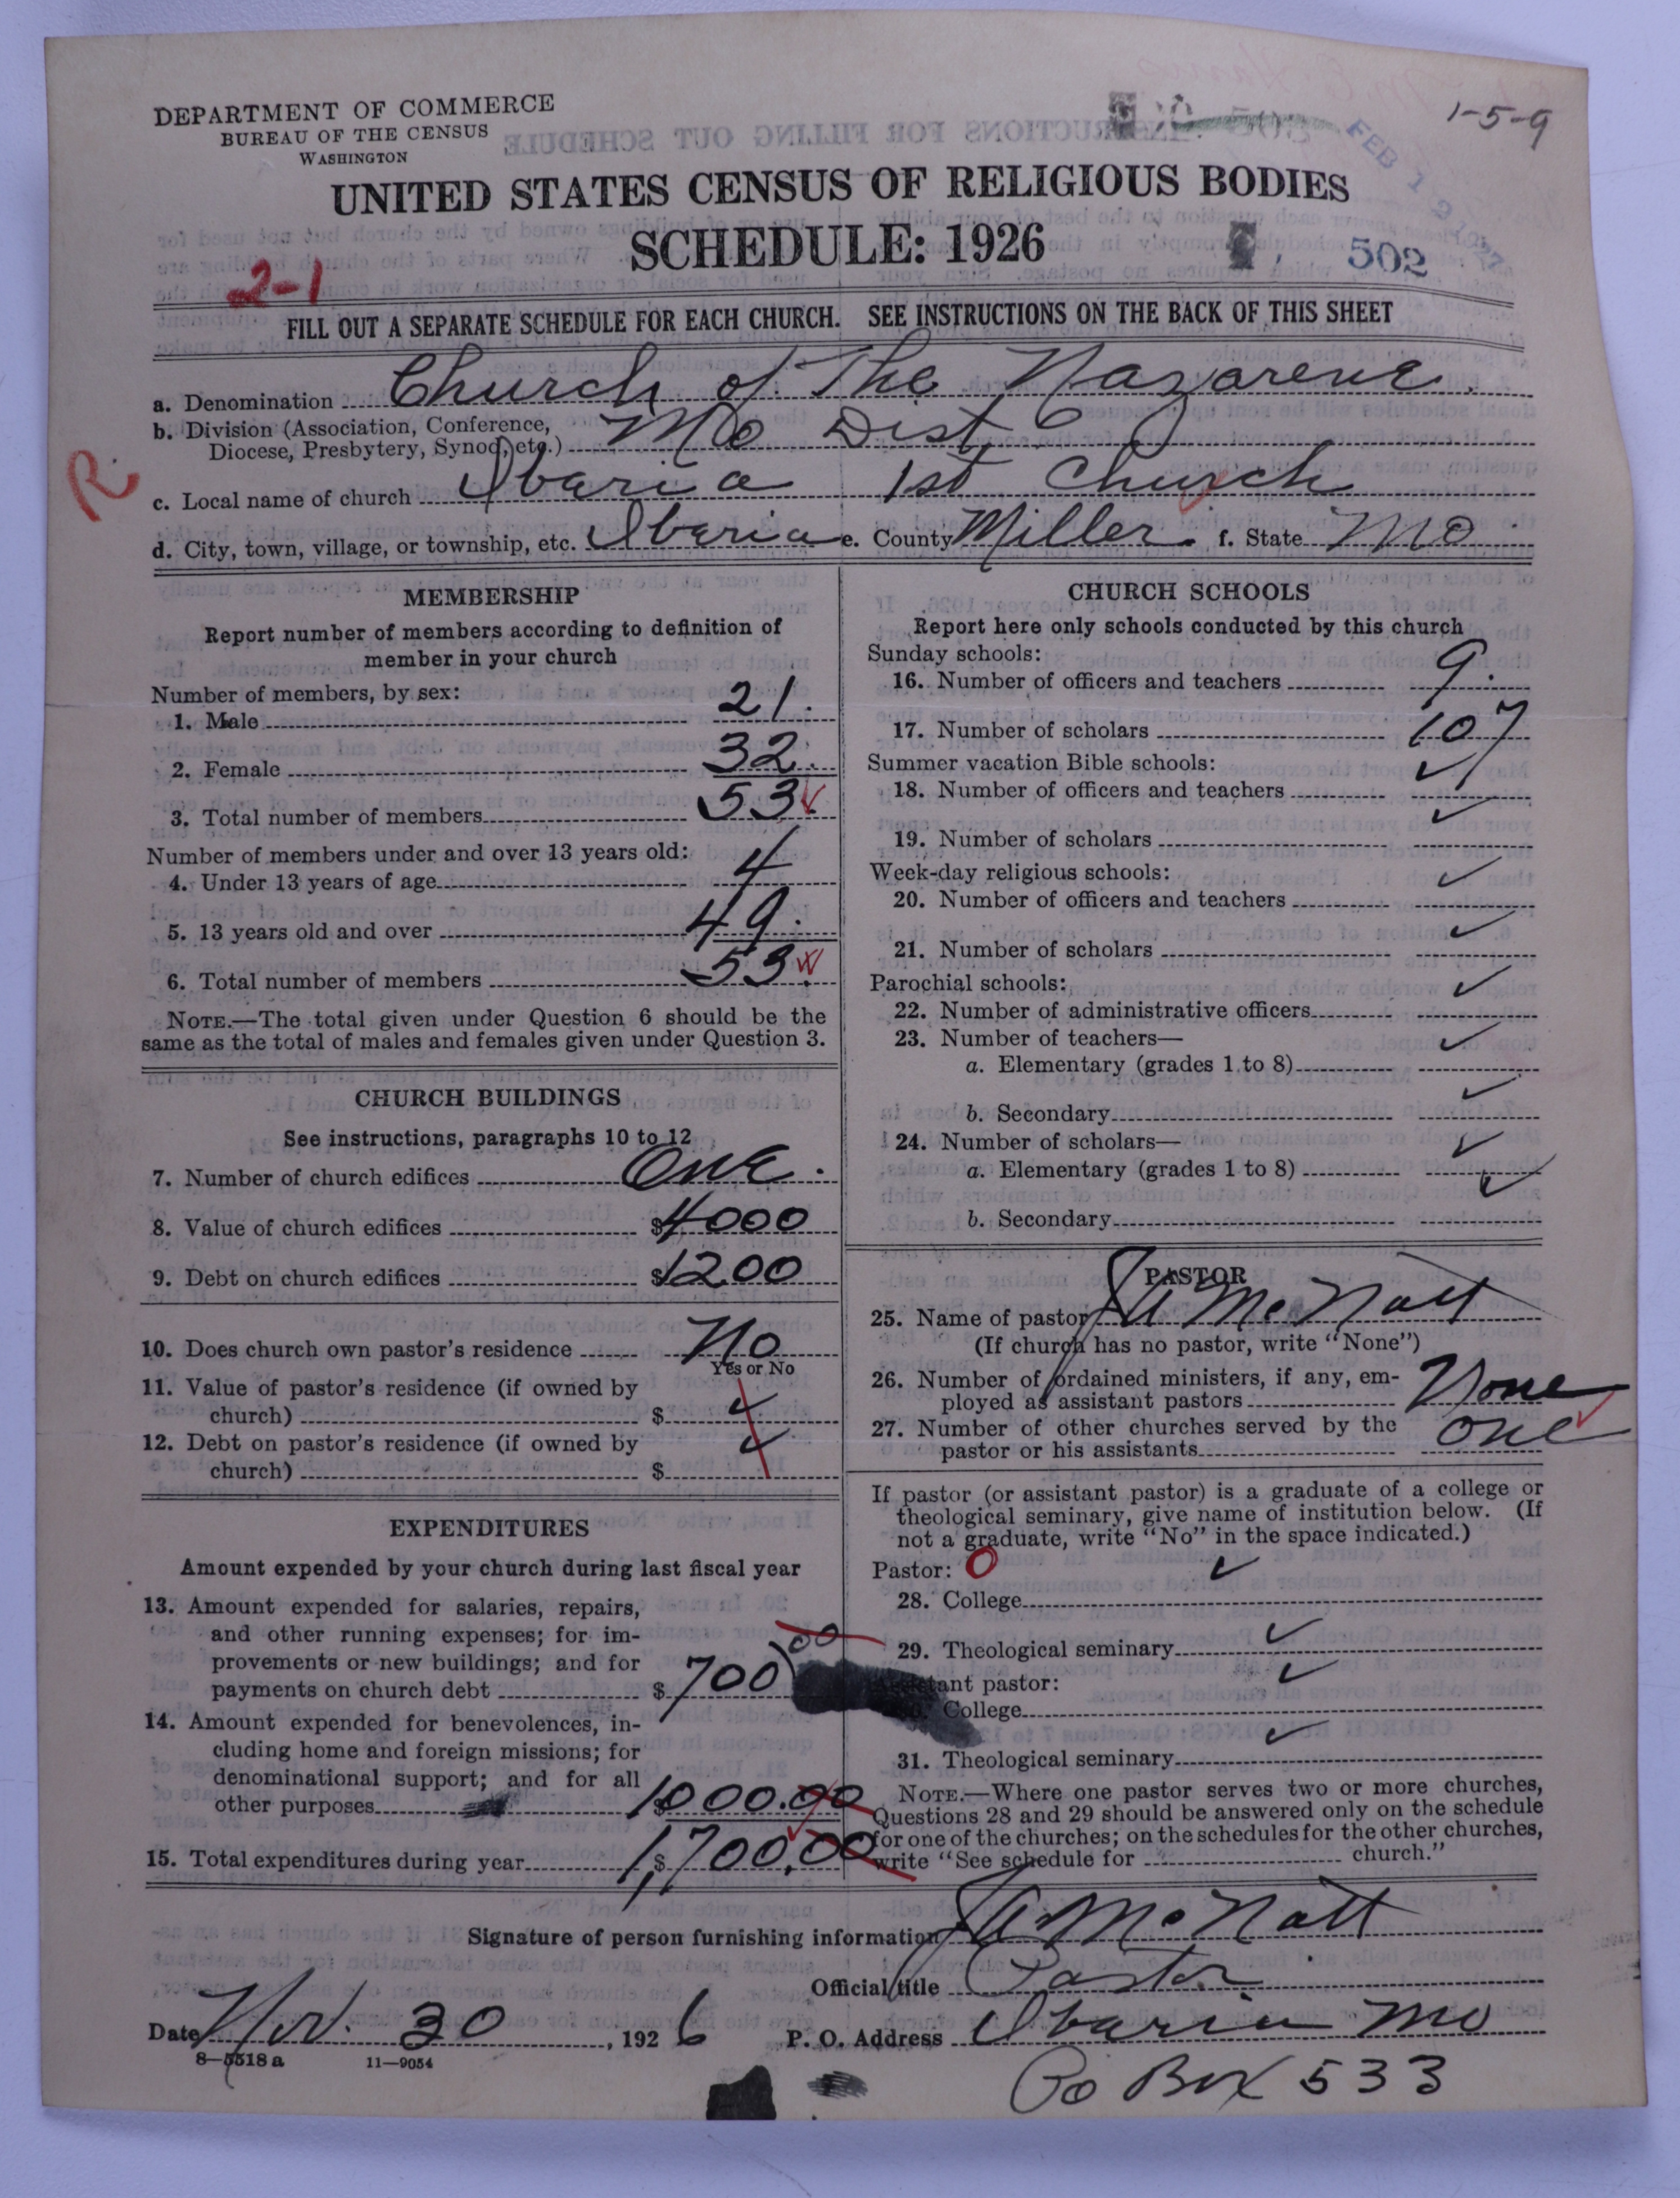 DEPARTMENT OF COMMERCE
BUREAU OF THE CENSUS
WASHINGTON
1-5-9
FEB 12 1927
UNITED STATES CENSUS OF RELIGIOUS BODIES
SCHEDULE: 1926
502
2-1
FILL OUT A SEPARATE SCHEDULE FOR EACH CHURCH. SEE INSTRUCTIONS ON THE BACK OF THIS SHEET
a. Denomination Church of The Nazarene.
b. Division (Association, Conference,
Diocese, Presbytery, Synod, etc.) Mo Dist
R.
c. Local name of church Ibaria 1st Church
d. City, town, village, or township, etc. Ibaria e. County Miller. f. State Mo.
MEMBERSHIP
Report number of members according to definition of
member in your church
Number of members, by sex:
1. Male 21.
2. Female 32.
3. Total number of members 53
Number of members under and over 13 years old:
4. Under 13 years of age 4
5. 13 years old and over 49.
6. Total number of members 53.
NOTE.—The total given under Question 6 should be the
same as the total of males and females given under Question 3.
CHURCH BUILDINGS
See instructions, paragraphs 10 to 12
7. Number of church edifices One.
8. Value of church edifices $4000
9. Debt on church edifices $1200
10. Does church own pastor's residence No
Yes or No
11. Value of pastor's residence (if owned by
church) $ ✓
12. Debt on pastor's residence (if owned by
church) $ ✓
EXPENDITURES
Amount expended by your church during last fiscal year
13. Amount expended for salaries, repairs,
and other running expenses; for im-
provements or new buildings; and for
payments on church debt $700 00
14. Amount expended for benevolences, in-
cluding home and foreign missions; for
denominational support; and for all
other purposes $1000.00
15. Total expenditures during year $1,700.00
CHURCH SCHOOLS
Report here only schools conducted by this church
Sunday schools:
16. Number of officers and teachers 9.
17. Number of scholars 107
Summer vacation Bible schools:
18. Number of officers and teachers ✓
19. Number of scholars ✓
Week-day religious schools:
20. Number of officers and teachers ✓
21. Number of scholars ✓
Parochial schools:
22. Number of administrative officers ✓
23. Number of teachers—
a. Elementary (grades 1 to 8) ✓
b. Secondary ✓
24. Number of scholars—
a. Elementary (grades 1 to 8) ✓
b. Secondary ✓
PASTOR
25. Name of pastor McNatt
(If church has no pastor, write "None")
26. Number of ordained ministers, if any, em-
ployed as assistant pastors None
27. Number of other churches served by the
pastor or his assistants one
If pastor (or assistant pastor) is a graduate of a college or
theological seminary, give name of institution below. (If
not a graduate, write "No" in the space indicated.)
Pastor: 0
28. College ✓
29. Theological seminary ✓
tant pastor:
College ✓
31. Theological seminary ✓
NOTE.—Where one pastor serves two or more churches,
Questions 28 and 29 should be answered only on the schedule
for one of the churches; on the schedules for the other churches,
write "See schedule for church."
Signature of person furnishing information McNatt
Official title Pastor
Date Nov. 30, 1926 P. O. Address Ibaria Mo
8—5518 a 11—9054
Po Box 533